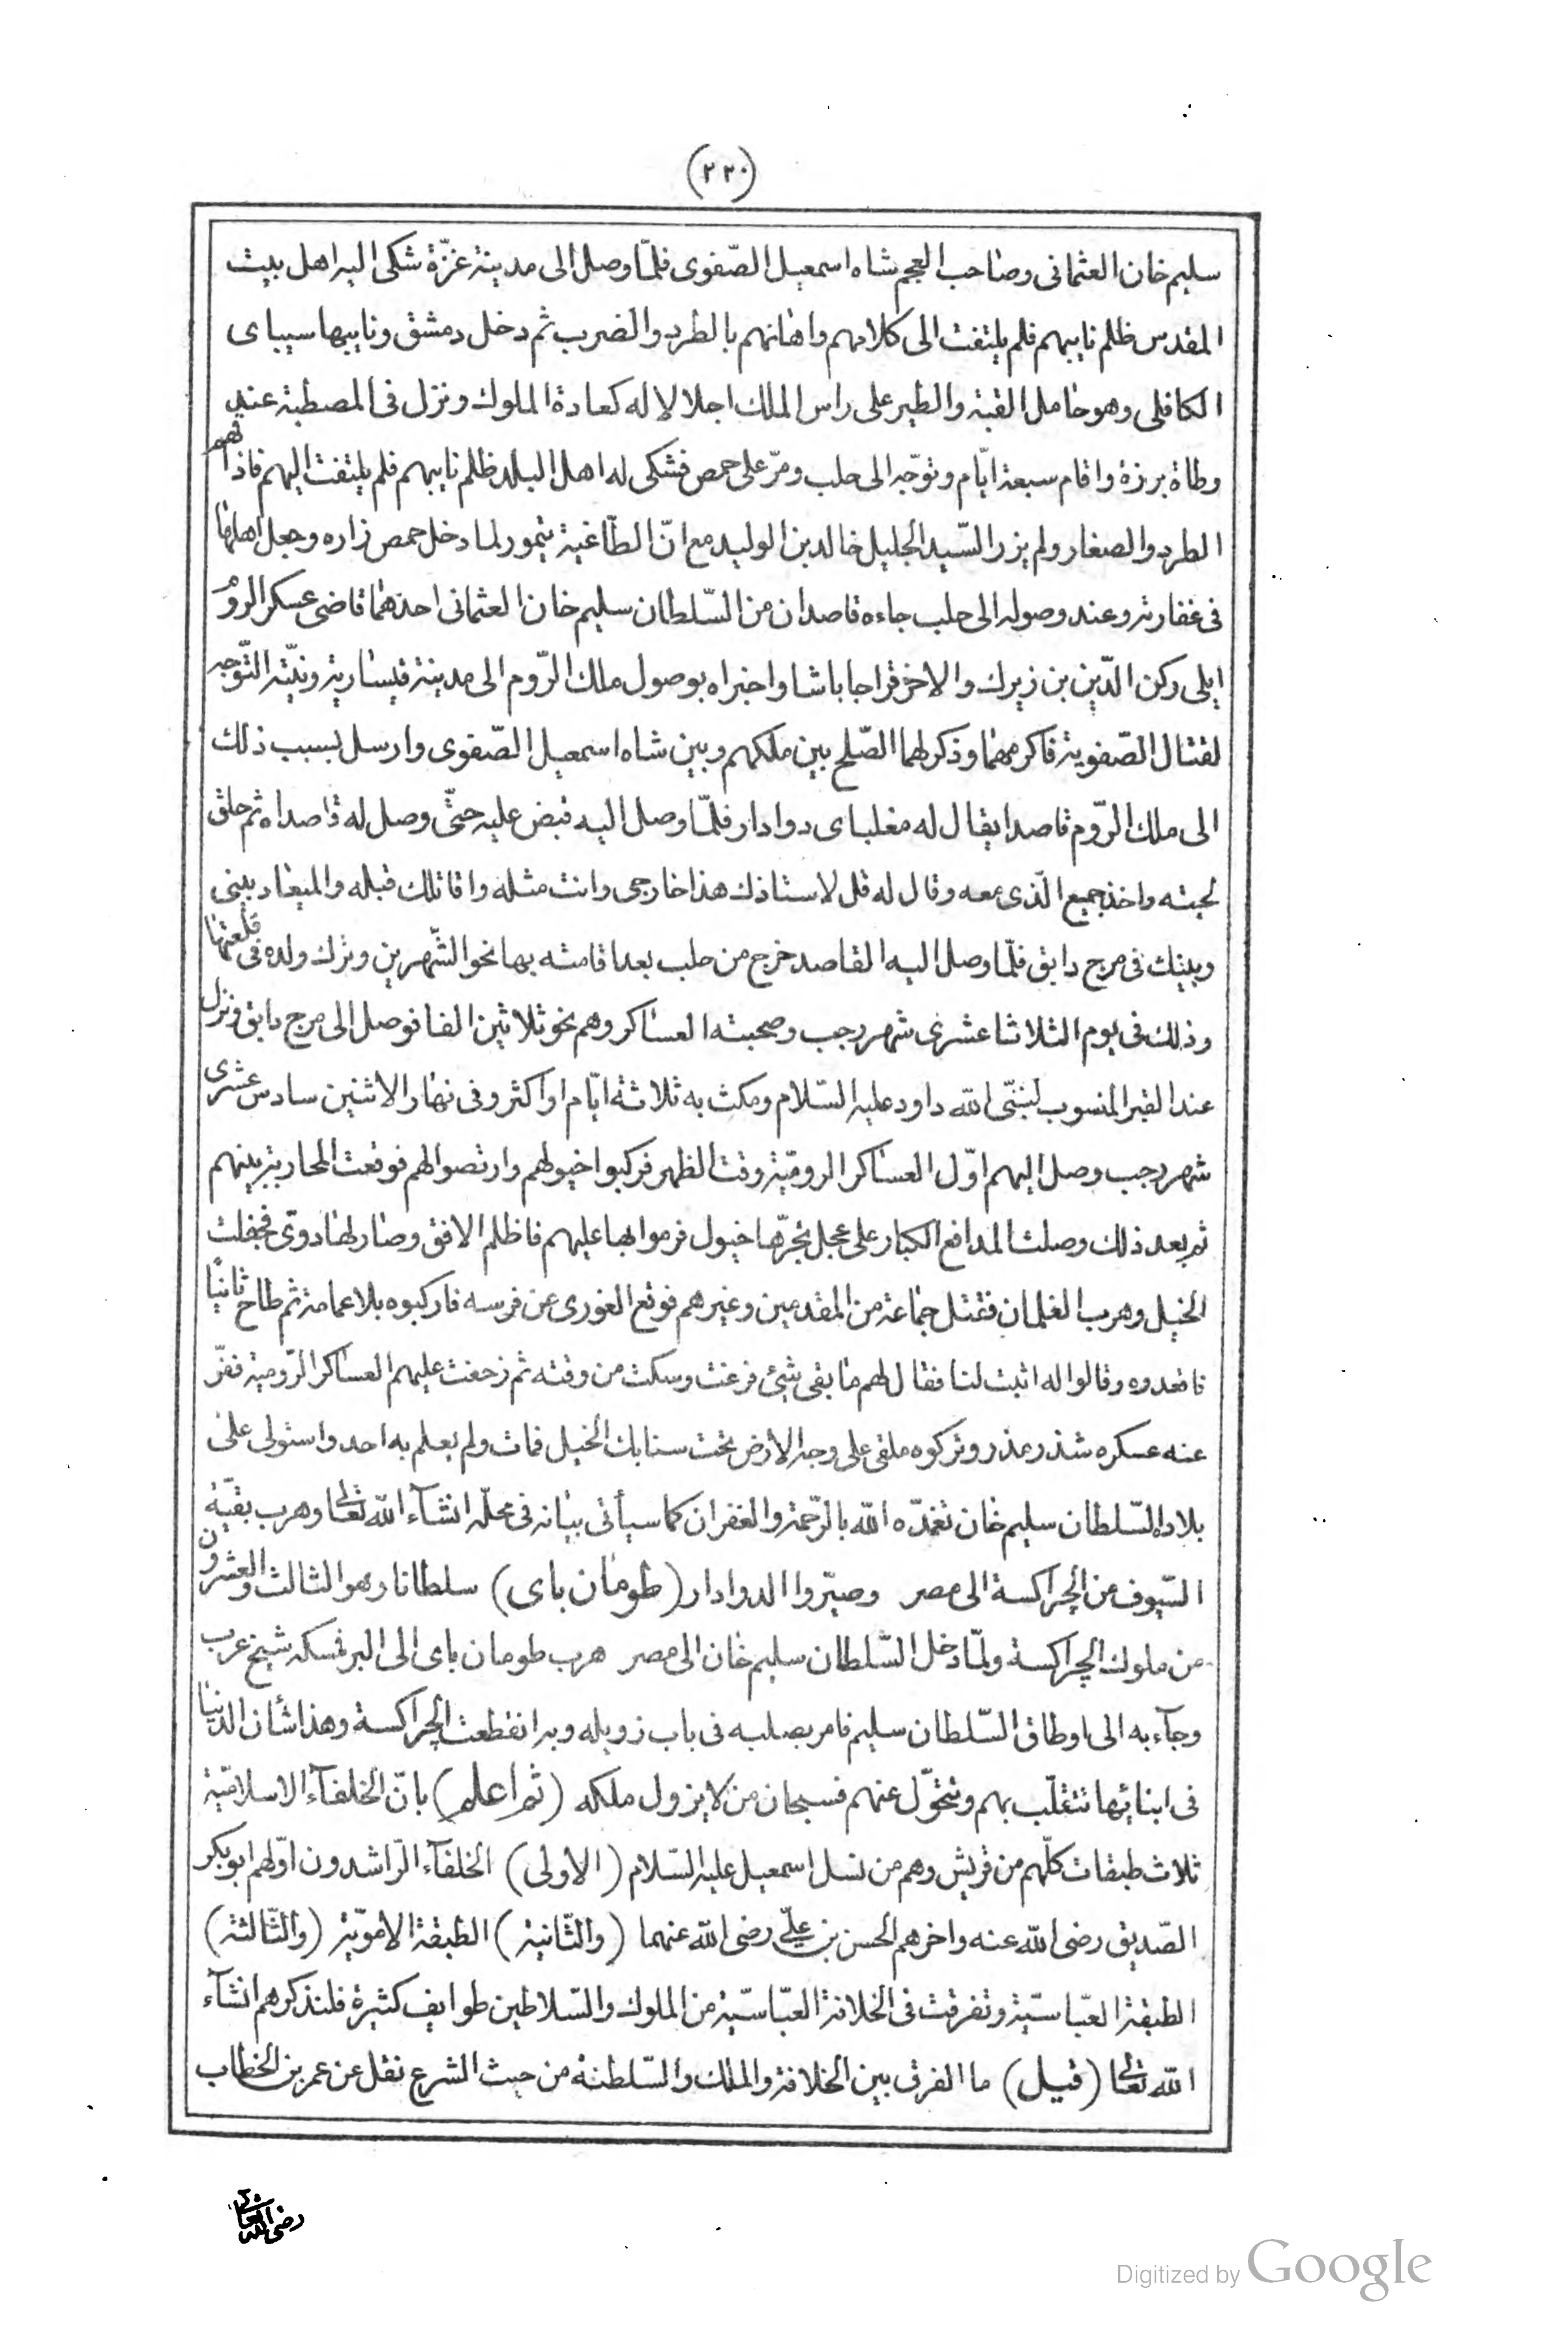 (٢٢٠)
سليم خان العثمانى وصاحب العجم شاه اسمعيل الصّفوى فلمّا وصل الى مدينة غزّة شكى اليه اهل بيت
المقدس ظلم نايبهم فلم يلتفت الى كلامهم واهانهم بالطرد والضرب ثم دخل دمشق ونايبها سيباى
الكافلى وهو حامل القبة والطير على راس الملك اجلالا له كعادة الملوك ونزل فى المصطبة عند
وطاة برزة واقام سبعة ايّام وتوجّه الى حلب ومرّ على حمص فشكى له اهل البلد ظلم نايبهم فلم يلتفت اليهم فاذاقهم
الطرد والصغار ولم يزر السّيد الجليل خالد بن الوليد مع انّ الطّاغية تيمور لما دخل حمص زاره وجعل اهلها
فى غفارته وعند وصوله الى حلب جاءه قاصدان من السّلطان سليم خان العثمانى احدهما قاضى عسكر الروم
ايلى ركن الدّين بن زيرك والاخر قراجا باشا واخبراه بوصول ملك الرّوم الى مدينة قيسارية ونيّته التّوجه
لقتال الصّفوية فاكرمهما وذكر لهما الصّلح بين ملكهم وبين شاه اسمعيل الصّفوى وارسل بسبب ذلك
الى ملك الرّوم قاصدا يقال له مغلباى دوادار فلمّا وصل اليه قبض عليه حتّى وصل له قاصداه ثم حلق
لحيته واخذ جميع الّذى معه وقال له قل لاستاذك هذا خارجى وانت مثله واقاتلك قبله والميعاد بينى
وبينك فى مرج دابق فلمّا وصل اليه القاصد خرج من حلب بعد اقامته بها نحو الشّهرين وترك ولده فى قلعتها
وذلك فى يوم الثلاثا عشرى شهر رجب وصحبته العساكر وهم نحو ثلاثين الفا فوصل الى مرج دابق ونزل
عند القبر المنسوب لنبىّ الله داود عليه السّلام ومكث به ثلاثة ايّام او اكثر وفى نهار الاثنين سادس عشرى
شهر رجب وصل اليهم اوّل العساكر الروميّة وقت الظهر فركبوا خيولهم وارتصوا لهم فوقعت المحاربة بينهم
ثم بعد ذلك وصلت المدافع الكبار على عجل تجرّها خيول فرموا بها عليهم فاظلم الافق وصار لها دوىّ فجفلت
الخيل وهرب الغلمان فقتل جماعة من المقدمين وغيرهم فوقع الغورى عن فرسه فاركبوه بلا عمامة ثم طاح ثانيًا
فاقعدوه وقالوا له اثبت لنا فقال لهم ما بقى شئ فرغت وسكت من وقته ثم زحفت عليهم العساكر الرّومية ففرّ
عنه عسكره شذر مذر وتركوه ملقى على وجه الارض تحت سنابك الخيل فمات ولم يعلم به احد واستولى على
بلاده السّلطان سليم خان تغمّده الله بالرّحمة والغفران كما سيأتى بيانه فى محلّه انشآء الله تعالى وهرب بقيّة
السّيوف من الجراكسة الى مصر وصيّروا الدوادار (طومان باى) سلطانا وهو الثالث والعشرون
من ملوك الجراكسة ولمّا دخل السّلطان سليم خان الى مصر هرب طومان باى الى البر فمسكه شيخ عرب
وجآء به الى اوطاق السّلطان سليم فامر بصلبه فى باب زويله وبه انقطعت الجراكسة وهذا شأن الدنيا
فى ابنائها تتقلّب بهم وتتحوّل عنهم فسبحان من لا يزول ملكه (ثم اعلم) بانّ الخلفآء الاسلاميّة
ثلاث طبقات كلّهم من قريش وهم من نسل اسمعيل عليه السّلام (الاولى) الخلفآء الرّاشدون اوّلهم ابوبكر
الصّديق رضى الله عنه واخرهم الحسن بن علىّ رضى الله عنهما (والثّانية) الطبقة الامويّة (والثّالثة)
الطبقة العبّاسيّة وتفرقت فى الخلافة العبّاسيّة من الملوك والسّلاطين طوايف كثيرة فلنذكرهم انشآء
الله تعالى (قيل) ما الفرق بين الخلافة والملك والسّلطنة من حيث الشرع نقل عن عمر بن الخطاب
رضى الله
Digitized by Google